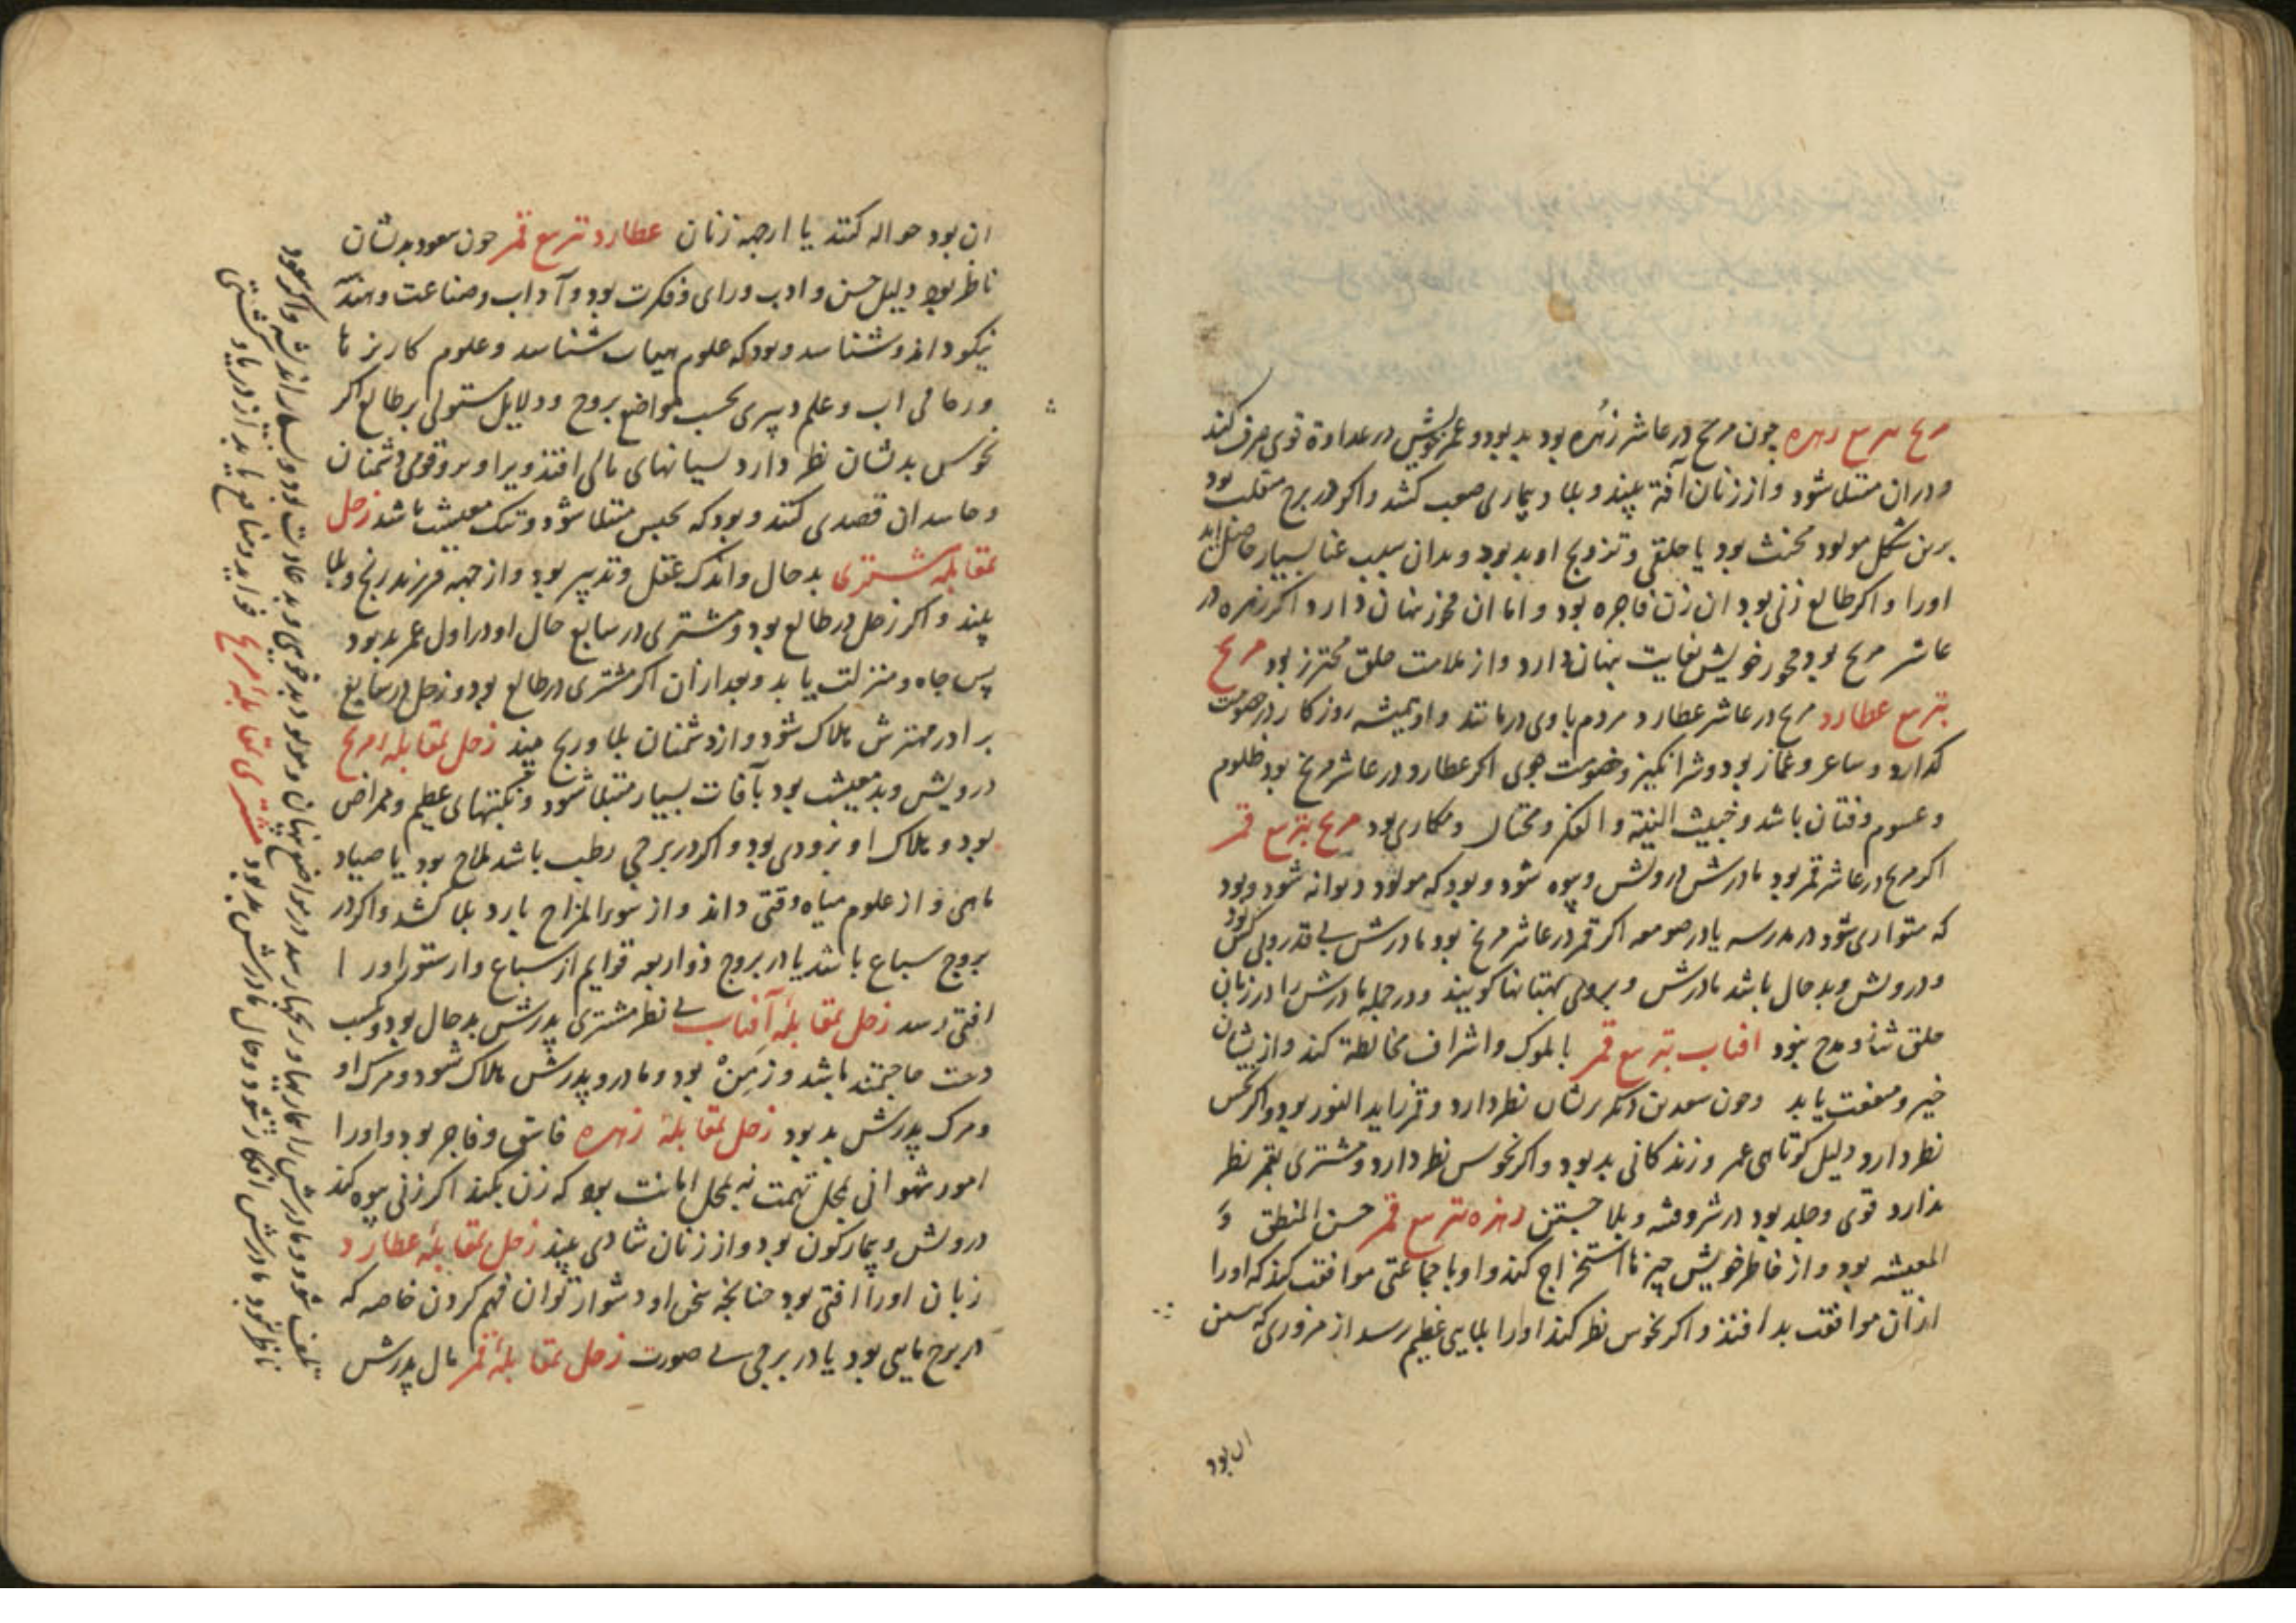 مریخ بتربیع زهره چون مریخ در عاشر زهره بود بد بود و عمر خویش در عداوة قوی صرف کند
و دران مبتلا شود و از زنان آفة بیند و بلا و بیماری صعب کشد و اکر در برج منقلب بود
برین شکل مولود مخنث بود یا حلقی و تزویج او بد بود و بدان سبب عنا بسیار حاصل اید
اورا و اکر طالع زنی بود ان زن فاجره بود و اما ان فجور نهان دارد اکر زهره در
عاشر مریخ بود فجور خویش بغایت نهان دارد و از ملامت خلق محترز بود مریخ
بتربیع عطارد مریخ در عاشر عطارد مردم با وی درمانند و او همیشه روزکار در خصومت
کذارد و ساعر و غماز بود و شرانکیز و خصومت جوی اکر عطارد در عاشر مریخ بود ظلوم
و غشوم و فتان باشد و خبیث النیته و الفکر و محتال و مکاری بود مریخ بتربیع قمر
اکر مریخ در عاشر قمر بود مادرش درویش و بیوه شود و بود که مولود دیوانه شود و بود
که متواری شود در مدرسه یا در صومعه اکر قمر در عاشر مریخ بود مادرش بی قدر و بی کس بود
و درویش و بدحال باشد مادرش و بروی بهتانها کویند و در جمله مادرش را در زبان
خلق ثنا و مدح نبود افتاب بتربیع قمر با ملوک و اشراف مخالطة کند و ازیشان
خیر و منفعت یابد و چون سعدین دیکر برشان نظر دارد و قمر زاید النور بود و اکر نحس
نظر دارد دلیل کوتاهی عمر و زندکانی بد بود و اکر نحوس نظر دارد و مشتری بقمر نظر
ندارد قوی و جلد بود در شر و فتنه و بلا جستن زهره بتربیع قمر حسن المنطق و
المعیشه بود و از خاطر خویش چیزها استخراج کند و او با جماعتی موافقت کند که اورا
ازان موافقت بد افتد و اکر نحوس نظر کند اورا بلایی عظیم رسد از مزوری که سخن
ان بود
ان بود حواله کنند یا از جهه زنان عطارد بتربیع قمر چون سعود بدشان
ناظر بود دلیل حسن و ادب و رای و فکرت بود و آداب و صناعت و هندسه
نیکو داند و شناسد و بود که علوم هیات شناسد و علوم کاریزها
و رحالی اب و علم دبیری بحسب مواضع بروج و دلایل مستولی بر طالع اکر
نحوس بدشان نظر دارد بسیانهای مالی افتد ویرا و برو قومی دشمنان
و حاسدان قصدی کنند و بود که بحبس مبتلا شود و تنک معیشت باشد زحل
بمقابله مشتری بدحال و اندک عقل و تدبیر بود و از جهه فرزند رنج و بلا
بیند و اکر زحل در طالع بود و مشتری در سابع حال او در اول عمر بد بود
پس جاه و منزلت یابد و بعد ازان اکر مشتری در طالع بود و زحل در سابع
برادر مهترش هلاک شود و از دشمنان بلا و رنج بیند زحل بمقابله مریخ
درویش و بدمعیشت بود بآفات بسیار مبتلا شود و نکبتهای عظیم و ممراض
بود و هلاک او بزودی بود و اکر در برجی رطب باشد ملاح بود یا صیاد
ماهی و از علوم میاه وقتی داند و از سوءالمزاج بارد بلا کشد و اکر در
بروج سباع باشد یا در بروج ذوات اربعه قوایم از سباع و از ستور اورا
افتی رسد زحل بمقابلهٔ آفتاب بی نظر مشتری پدرش بدحال بود و بکسب
دست حاجتمند باشد و زمن بود و مادر و پدرش هلاک شود و مرک او
و مرک پدرش بد بود زحل بمقابلهٔ زهره فاسق و فاجر بود و اورا
امور شهوانی بمحل تهمت نه بمحل امانت بود که زن بکند اکر زنی بیوه کند
درویش و بیمارکون بود و از زنان شادی بیند زحل بمقابلهٔ عطارد
زبان اورا افتی بود چنانچه سخن او دشوار توان فهم کردن خاصه که
در برج مایی بود یا در برجی بی صورت زحل بمقابلهٔ قمر مال پدرش
تلف شود و مادرش را عاریها و رنجها رسد در مواضع نهان و مولود بدخوی و بد عادت بود و بسیار اندیشه و اکر سعود
ناظر نبود مادرش افکار شود و حال مادرش بد بود مشتری بمقابلهٔ مریخ فواید و منافع یابد از دریا و کشتی